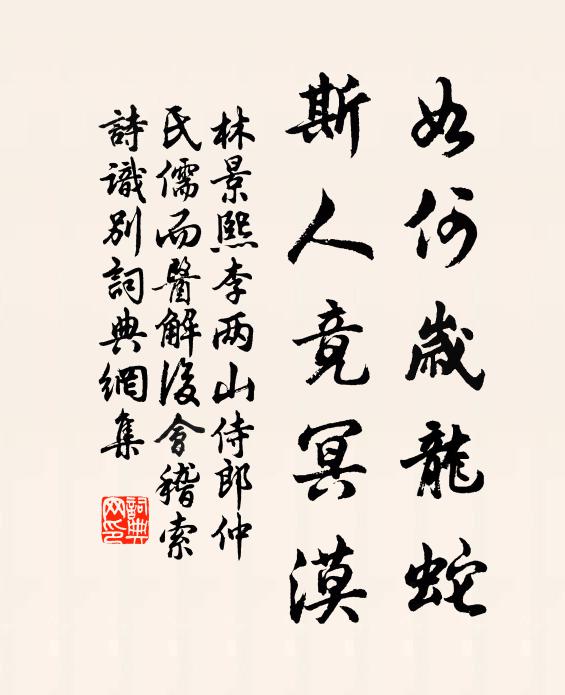 如何歲龍蛇
斯人竟冥漠
林景熙李两山侍郎仲
民儒而醫解後會稽索
詩識别詞典網集
詞典网印